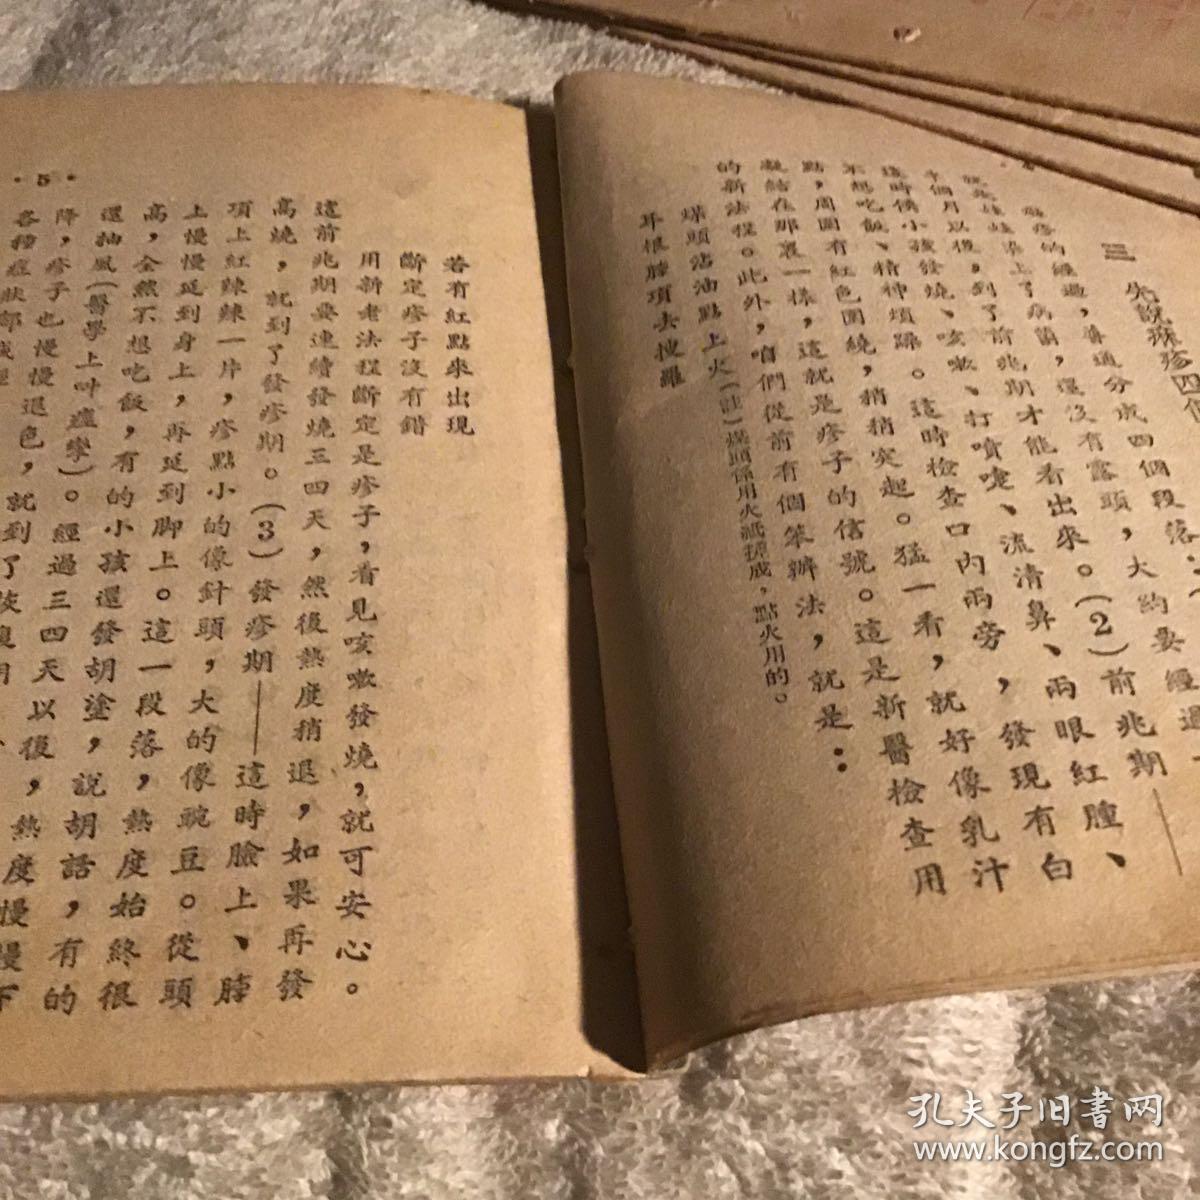 三 先說麻疹四
麻疹的經過，普通分成四個段落：
就是娃娃染上了病菌，還沒有露頭，大約要經過
十個月以後，到了前兆期才能看出來。(2)前兆期——
這時候小孩發燒、咳嗽、打噴嚏、流清鼻、兩眼紅腫、
不想吃飯、精神煩躁。這時檢查口內兩旁，發現有白
點，周圍有紅色圍繞，稍稍突起。猛一看，就好像乳汁
凝結在那裏一樣，這就是疹子的信號。這是新醫檢查用
的新法程。此外，咱們從前有個笨辦法，就是：
煤頭沾油點上火(註)煤頭係用火紙搓成，點火用的。
耳根脖項去搜羅
·5·
若有紅點來出現
斷定疹子沒有錯
用新老法程斷定是疹子，看見咳嗽發燒，就可安心。
這前兆期要連續發燒三四天，然後熱度稍退，如果再發
高燒，就到了發疹期。(3)發疹期——這時臉上、脖
項上紅辣辣一片，疹點小的像針頭，大的像豌豆。從頭
上慢慢延到身上，再延到脚上。這一段落，熱度始終很
高，全然不想吃飯，有的小孩還發胡塗，說胡話，有的
還抽風(醫學上叫痙攣)。經過三四天以後，熱度慢慢下
降，疹子也慢慢退色，就到了恢復期
各種症狀都減輕
孔夫子旧书网
www.kongfz.com